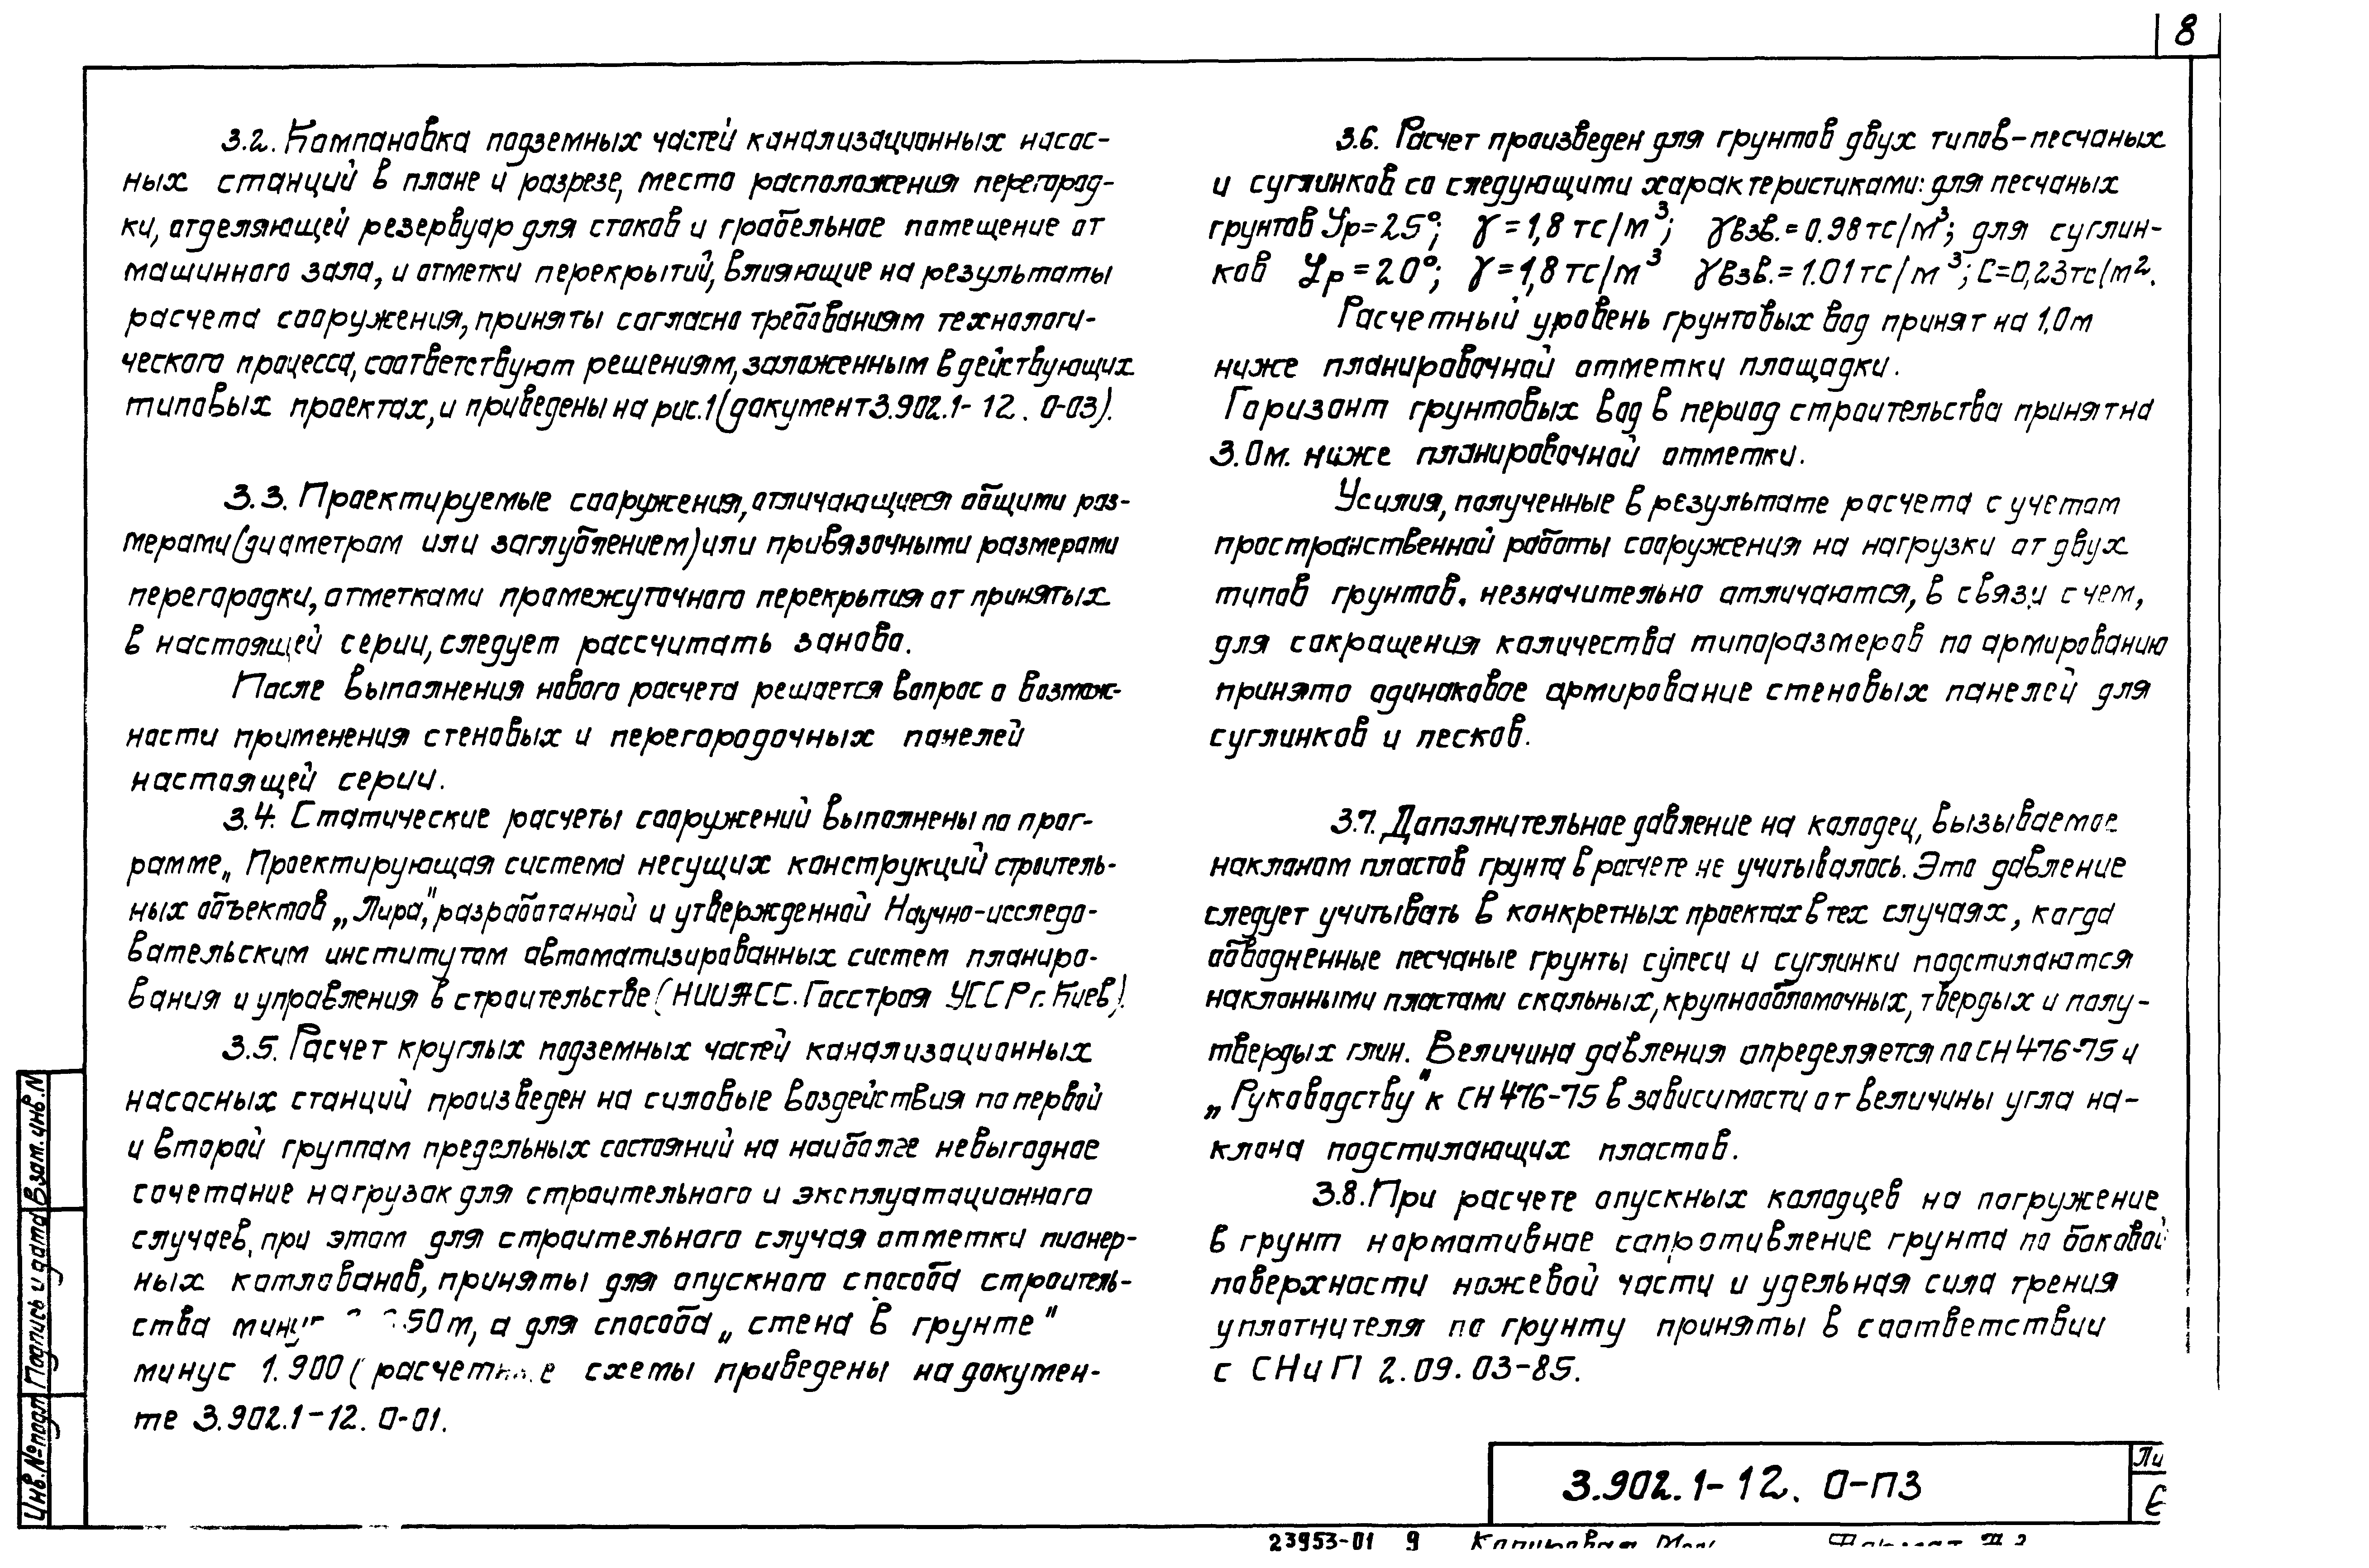 8
3.2. Компановка подземных частей канализационных насос-
ных станций в плане и разрезе, место расположения перегород-
ки, отделяющей резервуар для стоков и грабельное помещение от
машинного зала, и отметки перекрытий, влияющие на результаты
расчета сооружения, приняты согласно требованиям технологи-
ческого процесса, соответствуют решениям, заложенным в действующих
типовых проектах, и приведены на рис.1 (документ 3.902.1-12. 0-03).
3.3. Проектируемые сооружения, отличающиеся общими раз-
мерами (диаметром или заглублением) или привязочными размерами
перегородки, отметками промежуточного перекрытия от принятых
в настоящей серии, следует рассчитать заново.
После выполнения нового расчета решается вопрос о возмож-
ности применения стеновых и перегородочных панелей
настоящей серии.
3.4. Статические расчеты сооружений выполнены по прог-
рамме „Проектирующая система несущих конструкций строитель-
ных объектов „Лира", разработанной и утвержденной Научно-исследо-
вательским институтом автоматизированных систем планиро-
вания и управления в строительстве (НИИАСС. Госстроя УССР г. Киев).
3.5. Расчет круглых подземных частей канализационных
насосных станций произведен на силовые воздействия по первой
и второй группам предельных состояний на наиболее невыгодное
сочетание нагрузок для строительного и эксплуатационного
случаев, при этом для строительного случая отметки пионер-
ных котлованов, приняты для опускного способа строитель-
ства минус 50м, а для способа „стена в грунте"
минус 1.900 (расчетные схемы приведены на докумен-
те 3.902.1-12. 0-01.
3.6. Расчет произведен для грунтов двух типов-песчаных
и суглинков со следующими характеристиками: для песчаных
грунтов φр=25°; γ=1,8 тс/м³; γвзв.=0.98тс/м³; для суглин-
ков φр=20°; γ=1,8 тс/м³ γвзв.=1.01тс/м³; С=0,23тс/м².
Расчетный уровень грунтовых вод принят на 1.0м
ниже планировочной отметки площадки.
Горизонт грунтовых вод в период строительства принят на
3.0м. ниже планировочной отметки.
Усилия, полученные в результате расчета с учетом
пространственной работы сооружения на нагрузки от двух
типов грунтов. незначительно отличаются, в связи с чем,
для сокращения количества типоразмеров по армированию
принято одинаковое армирование стеновых панелей для
суглинков и песков.
3.7. Дополнительное давление на колодец, вызываемое
наклоном пластов грунта в расчете не учитывалось. Это давление
следует учитывать в конкретных проектах в тех случаях, когда
обводненные песчаные грунты супеси и суглинки подстилаются
наклонными пластами скальных, крупнообломочных, твердых и полу-
твердых глин. Величина давления определяется по СН 476-75 и
„Руководству" к СН 476-75 в зависимости от величины угла на-
клона подстилающих пластов.
3.8. При расчете опускных колодцев на погружение
в грунт нормативное сопротивление грунта по боковой
поверхности ножевой части и удельная сила трения
уплотнителя по грунту приняты в соответствии
с СНиП 2.09.03-85.
Взам. инв. N
Подпись и дата
Инв. № подл
3.902.1-12. 0-ПЗ
Ли
23953-01 9 Копировал Формат